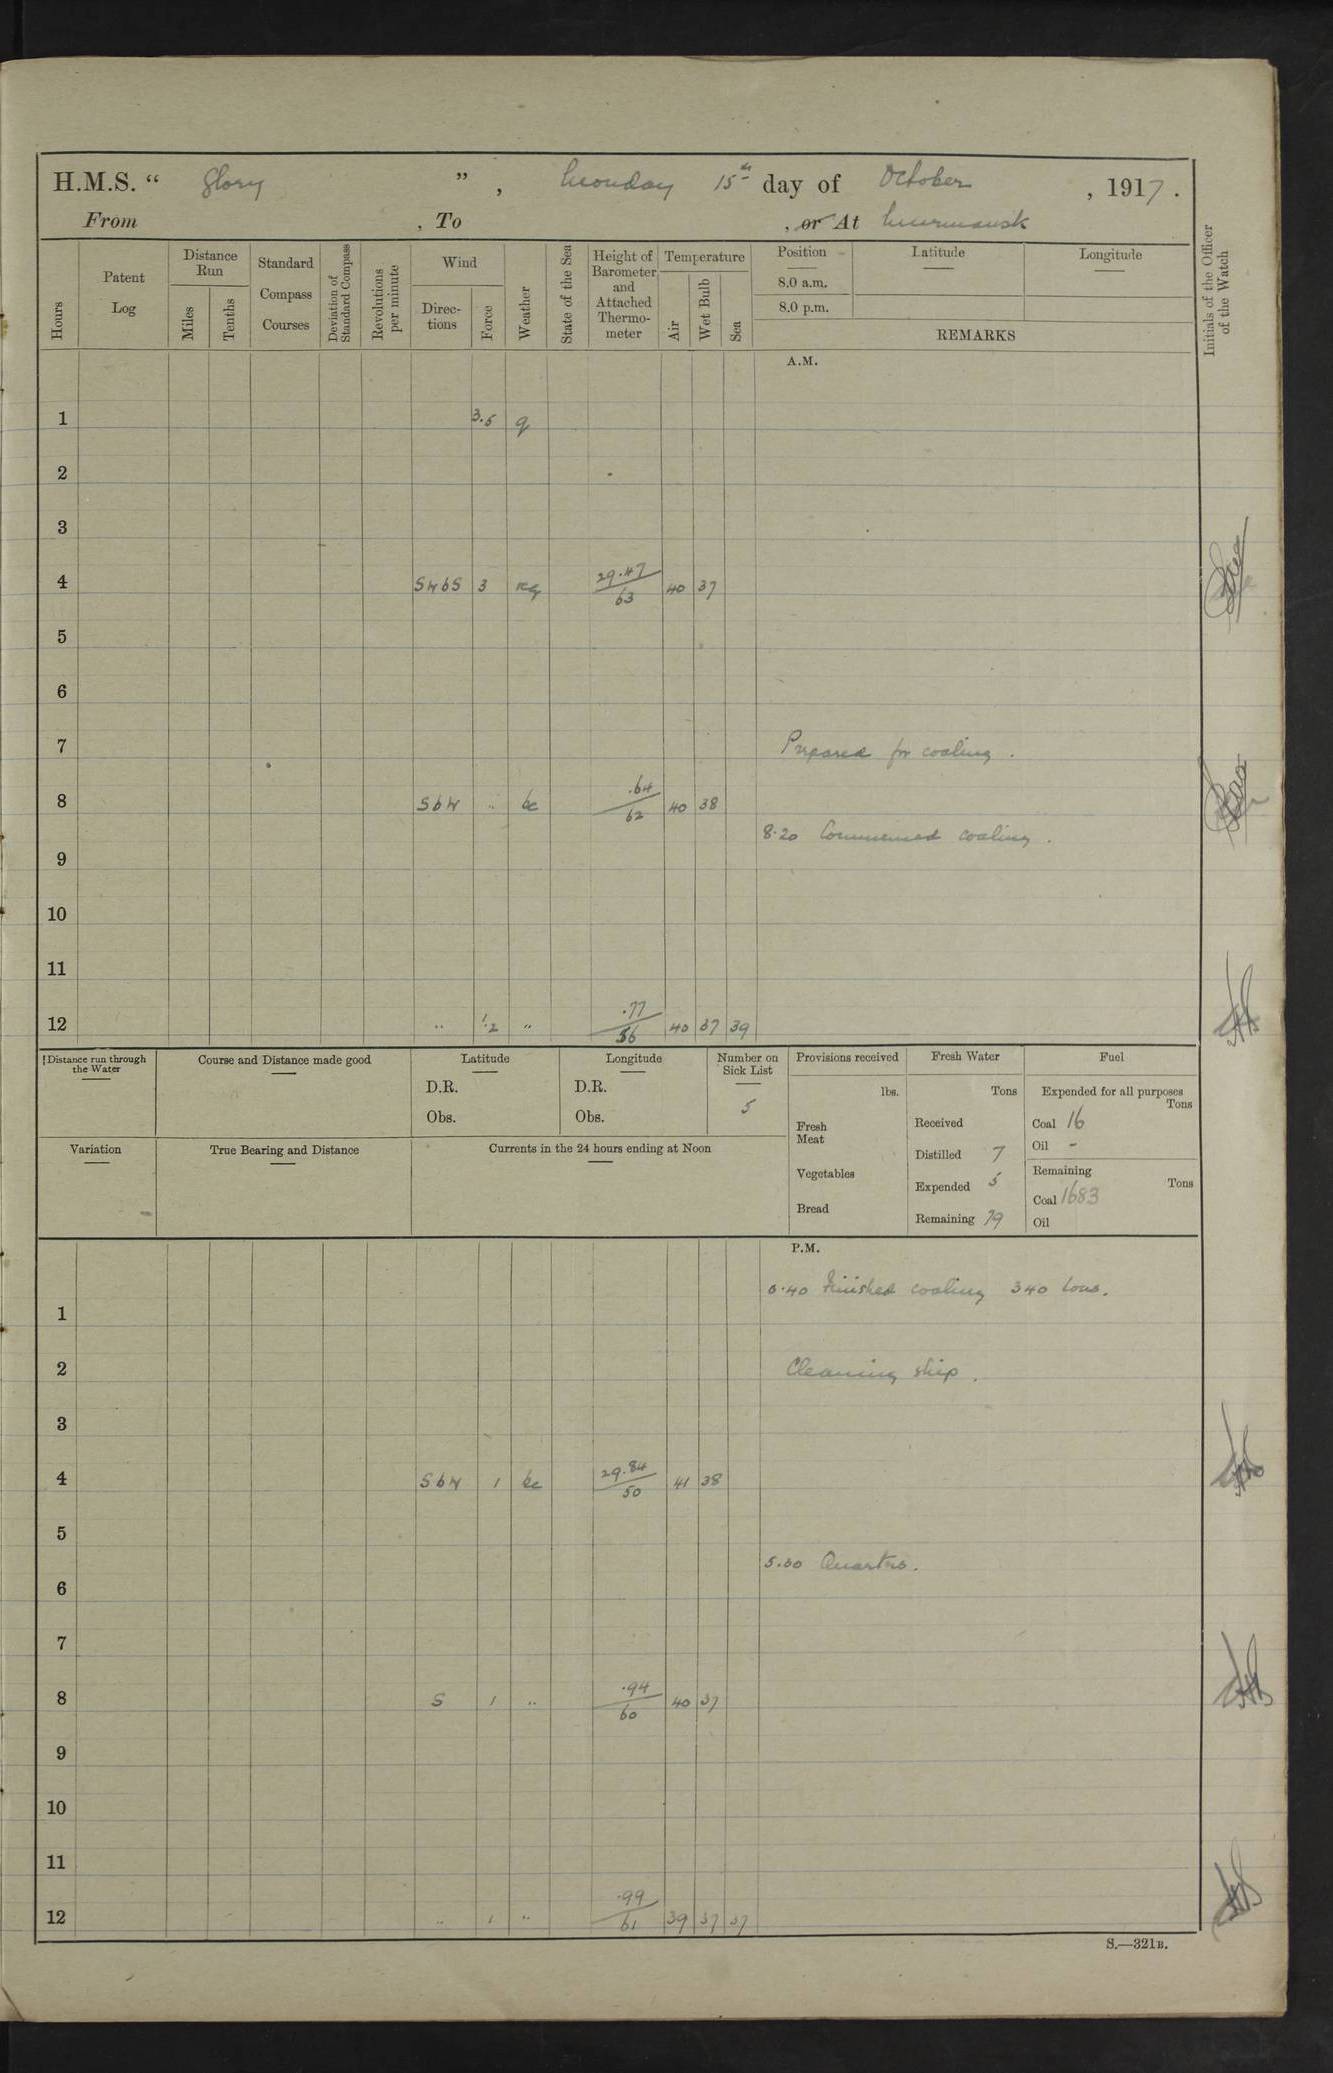 H.M.S. “ Glory ” , Monday 15th day of October , 1917 .
From , To , or At Murmansk
Hours
Patent Log
Distance Run
Miles
Tenths
Standard Compass Courses
Deviation of Standard Compass
Revolutions per minute
Wind
Direc-tions
Force
Weather
State of the Sea
Height of Barometer and Attached Thermo-meter
Temperature
Air
Wet Bulb
Sea
Position
8.0 a.m.
8.0 p.m.
Latitude
Longitude
REMARKS
Initials of the Officer of the Watch
A.M.
1 3.5 q
2
3
4 SWbS 3 29.47/63 40 37
5
6
7 Prepared for coaling .
8 SbW " bc .64/62 40 38
8.20 Commenced coaling .
9
10
11
12 " 1.2 " .77/56 40 37 39
Distance run through the Water
Course and Distance made good
Latitude
D.R.
Obs.
Longitude
D.R.
Obs.
Number on Sick List
5
Provisions received
lbs.
Fresh Meat
Vegetables
Bread
Fresh Water
Tons
Received
Distilled 7
Expended 5
Remaining 79
Fuel
Expended for all purposes
Tons
Coal 16
Oil -
Remaining
Tons
Coal 1683
Oil
Variation
True Bearing and Distance
Currents in the 24 hours ending at Noon
P.M.
0.40 Finished coaling 340 tons.
1
2 Cleaning ship .
3
4 SbW 1 bc 29.84/50 41 38
5
5.30 Quarters.
6
7
8 S 1 " .94/60 40 37
9
10
11
12 " 1 " .99/61 39 37 37
S.—321B.